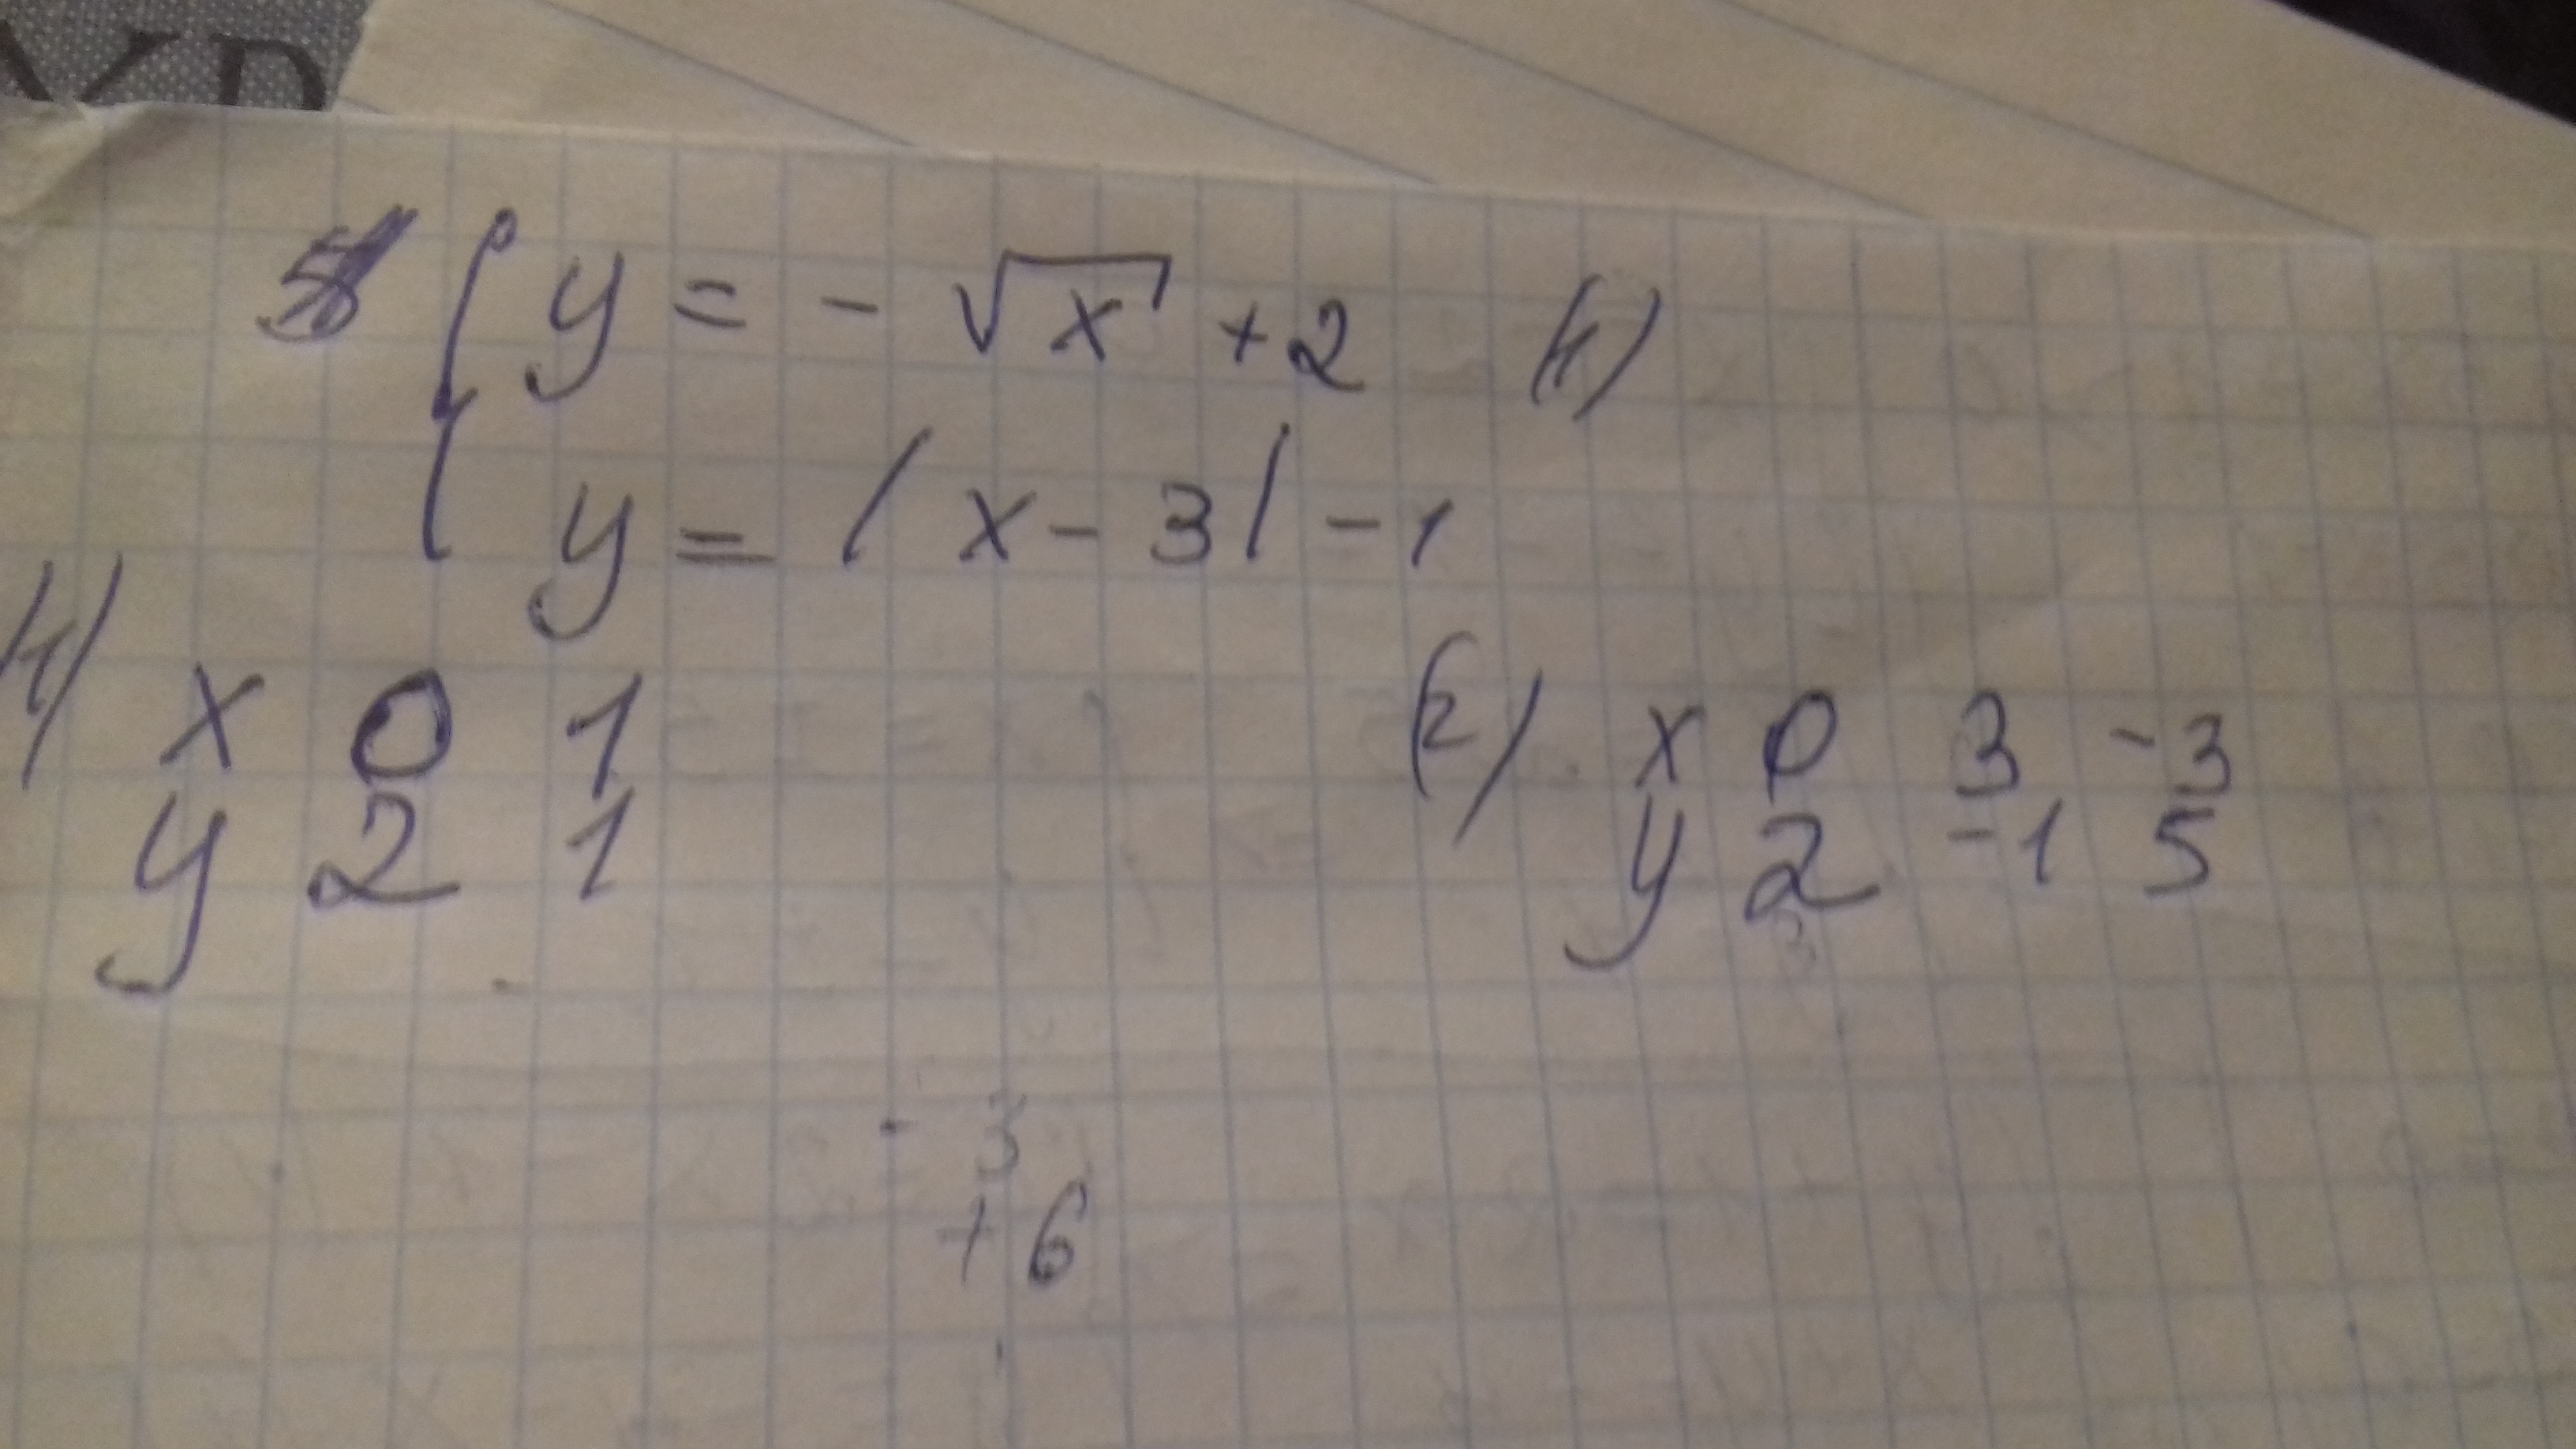 y = - √x + 2 (1)
y = | x - 3 | - 1
1) x 0 1
y 2 1
(2) x 0 3 -3
y 2 -1 5
- 3
+ 6